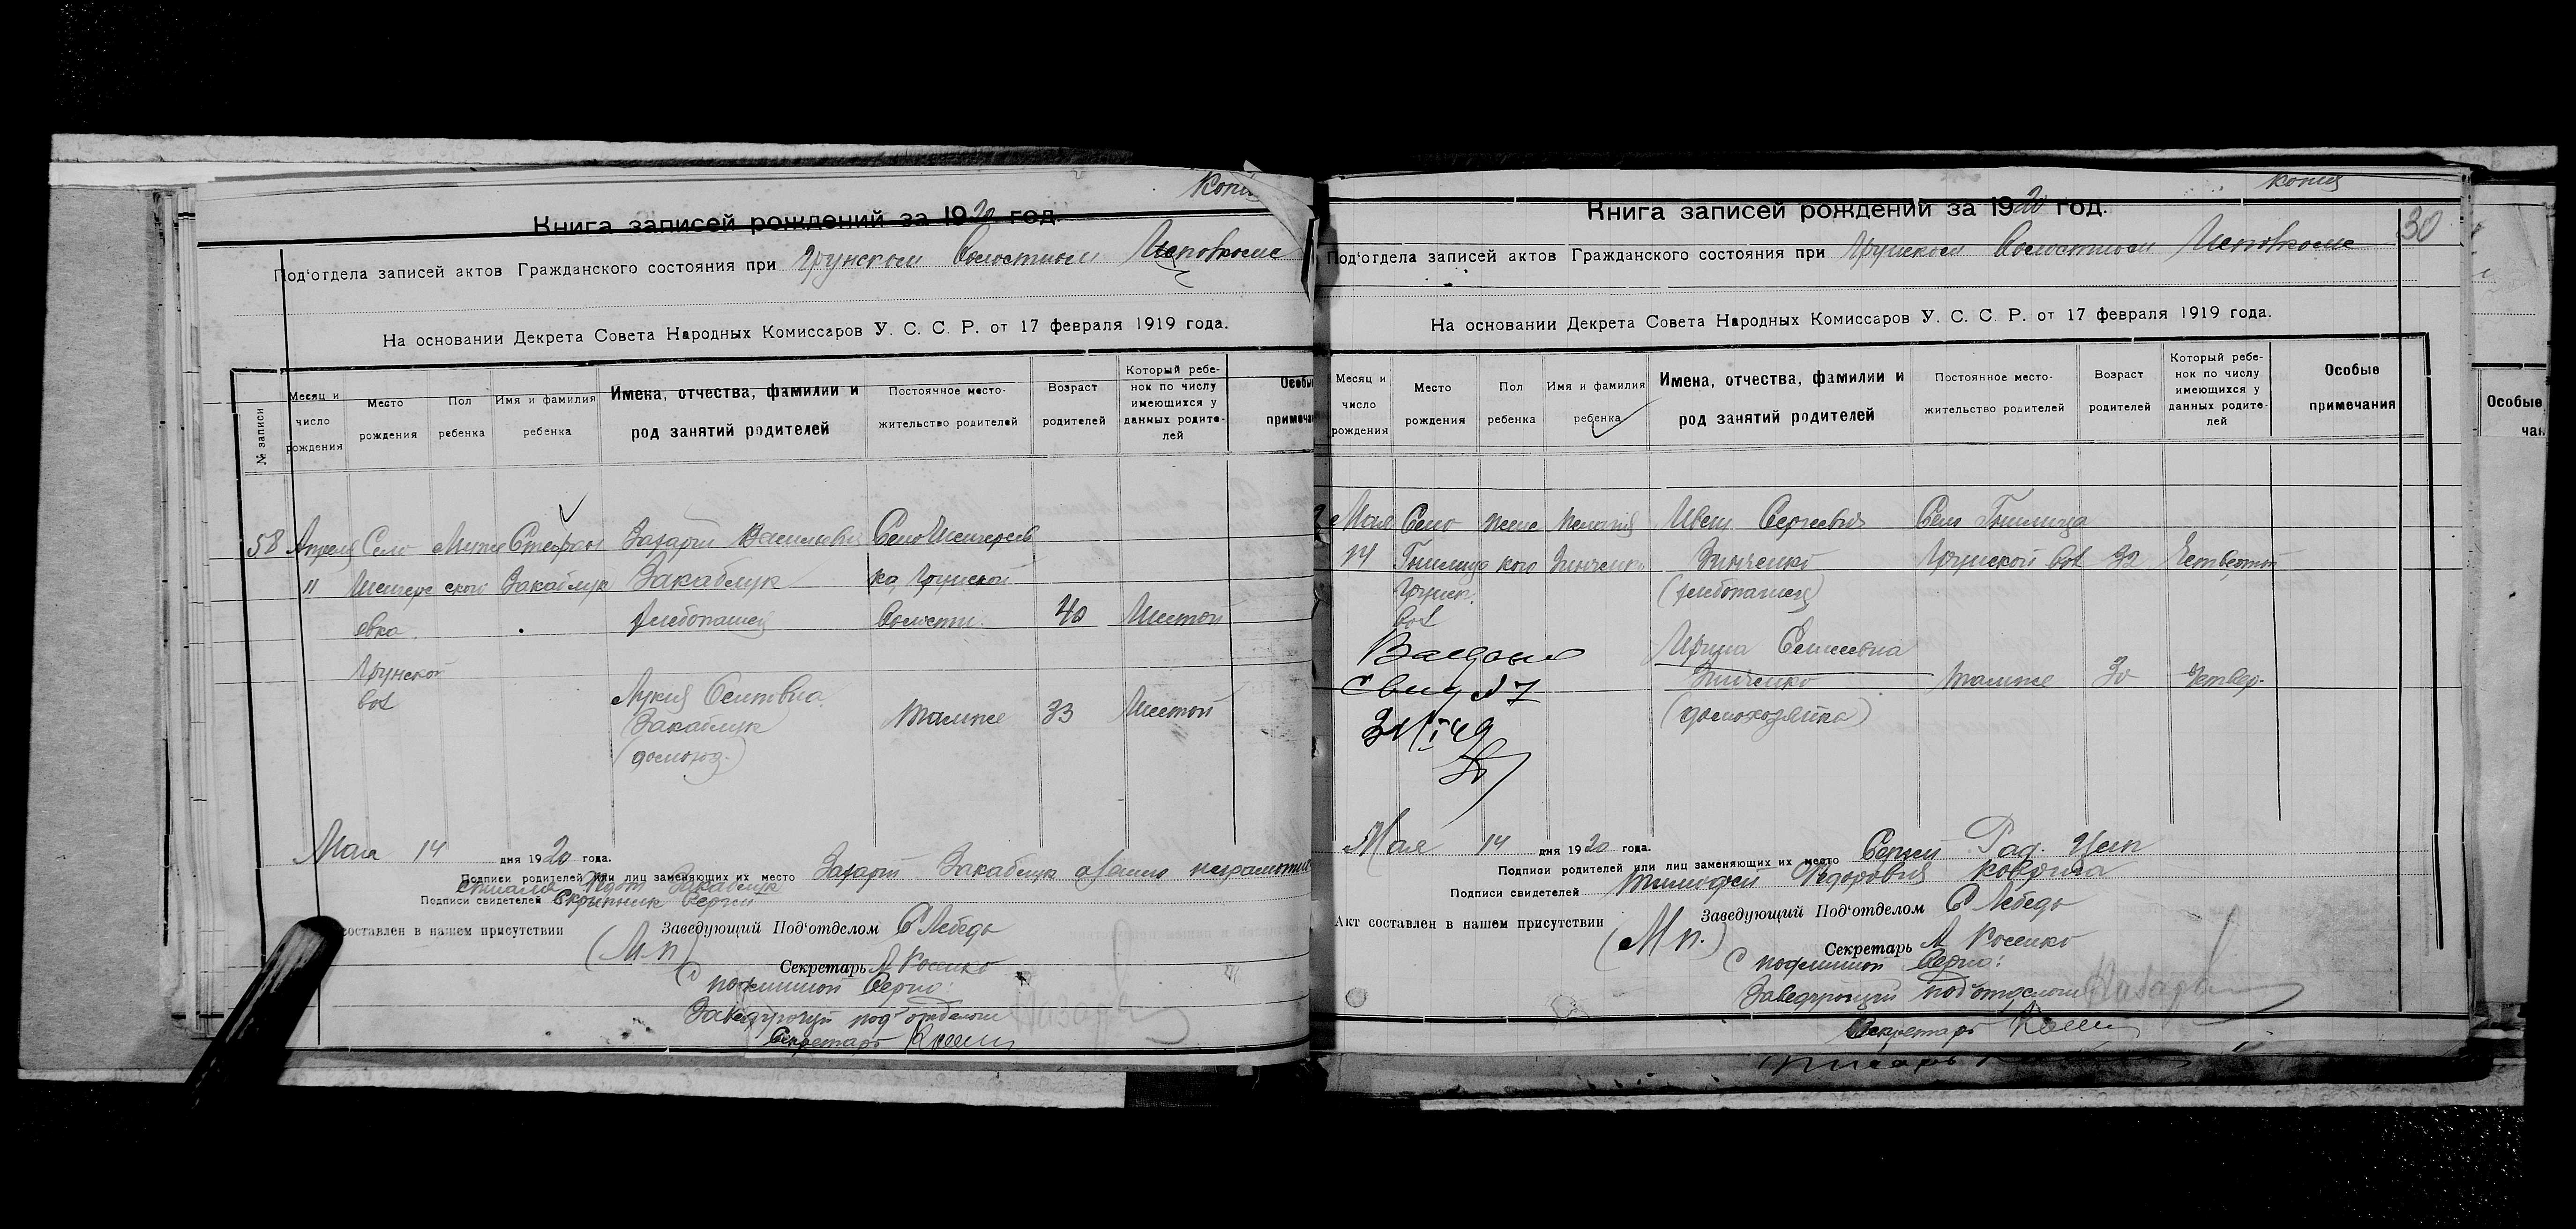 Копи
Книга записей рождений за 1920 год.
Под'отдела записей актов Гражданского состояния при Грунском Волостном Исполкоме
На основании Декрета Совета Народных Комиссаров У. С. С. Р. от 17 февраля 1919 года.
№ записи
Месяц и число рождения
Место рождения
Пол ребенка
Имя и фамилия ребенка
Имена, отчества, фамилии и род занятий родителей
Постоянное место-жительство родителей
Возраст родителей
Который ребе-нок по числу имеющихся у данных родите-лей
Особы
примеча
58 Апреля Село Муже Стефан Захарий Васильевич Село
11 ской Закаблук Закаблук ка, Грунской
евка хлебопашец Волости 40 Шестой
Грунской
вол
Лукия
Закаблук Тамже 33 Шестой
(домохоз.)
Мая 14 дня 1920 года.
Подписи родителей или лиц заменяющих их место Захарий Закаблук
Закаблук
Подписи свидетелей Скрипник Сергей
составлен в нашем присутствии
Заведующий Под'отделом С Лебедь
(М п)
Секретарь А Косенко
С подлинной верно:
Заведующий под'отделом
Секретарь
копия
Книга записей рождений за 1920 год.
30
Под'отдела записей актов Гражданского состояния при Грунском Волостном Исполкоме
На основании Декрета Совета Народных Комиссаров У. С. С. Р. от 17 февраля 1919 года.
Месяц и число рождения
Место рождения
Пол ребенка
Имя и фамилия ребенка
Имена, отчества, фамилии и род занятий родителей
Постоянное место-жительство родителей
Возраст родителей
Который ребе-нок по числу имеющихся у данных родите-лей
Особые примечания
Мая Село женс Пелагия Иван Сергеевич Село Гнилица
14 Гнилица кого Зинченко Зинченко Грунской вол 32 Четвертой
Грунск. (хлебопашец)
вол
Выдано Ирина
Зинченко Тамже 30 Четвер.
(домохозяйка)
Мая 14 дня 1920 года.
Подписи родителей или лиц заменяющих их место Сергей Рад.
Подписи свидетелей Тимофей Федорович Коврига
Акт составлен в нашем присутствии
Заведующий Под'отделом С Лебедь
(М п.)
Секретарь А Косенко
С подлинной верно:
Заведующий под'отделом
Секретарь
Особые
чан